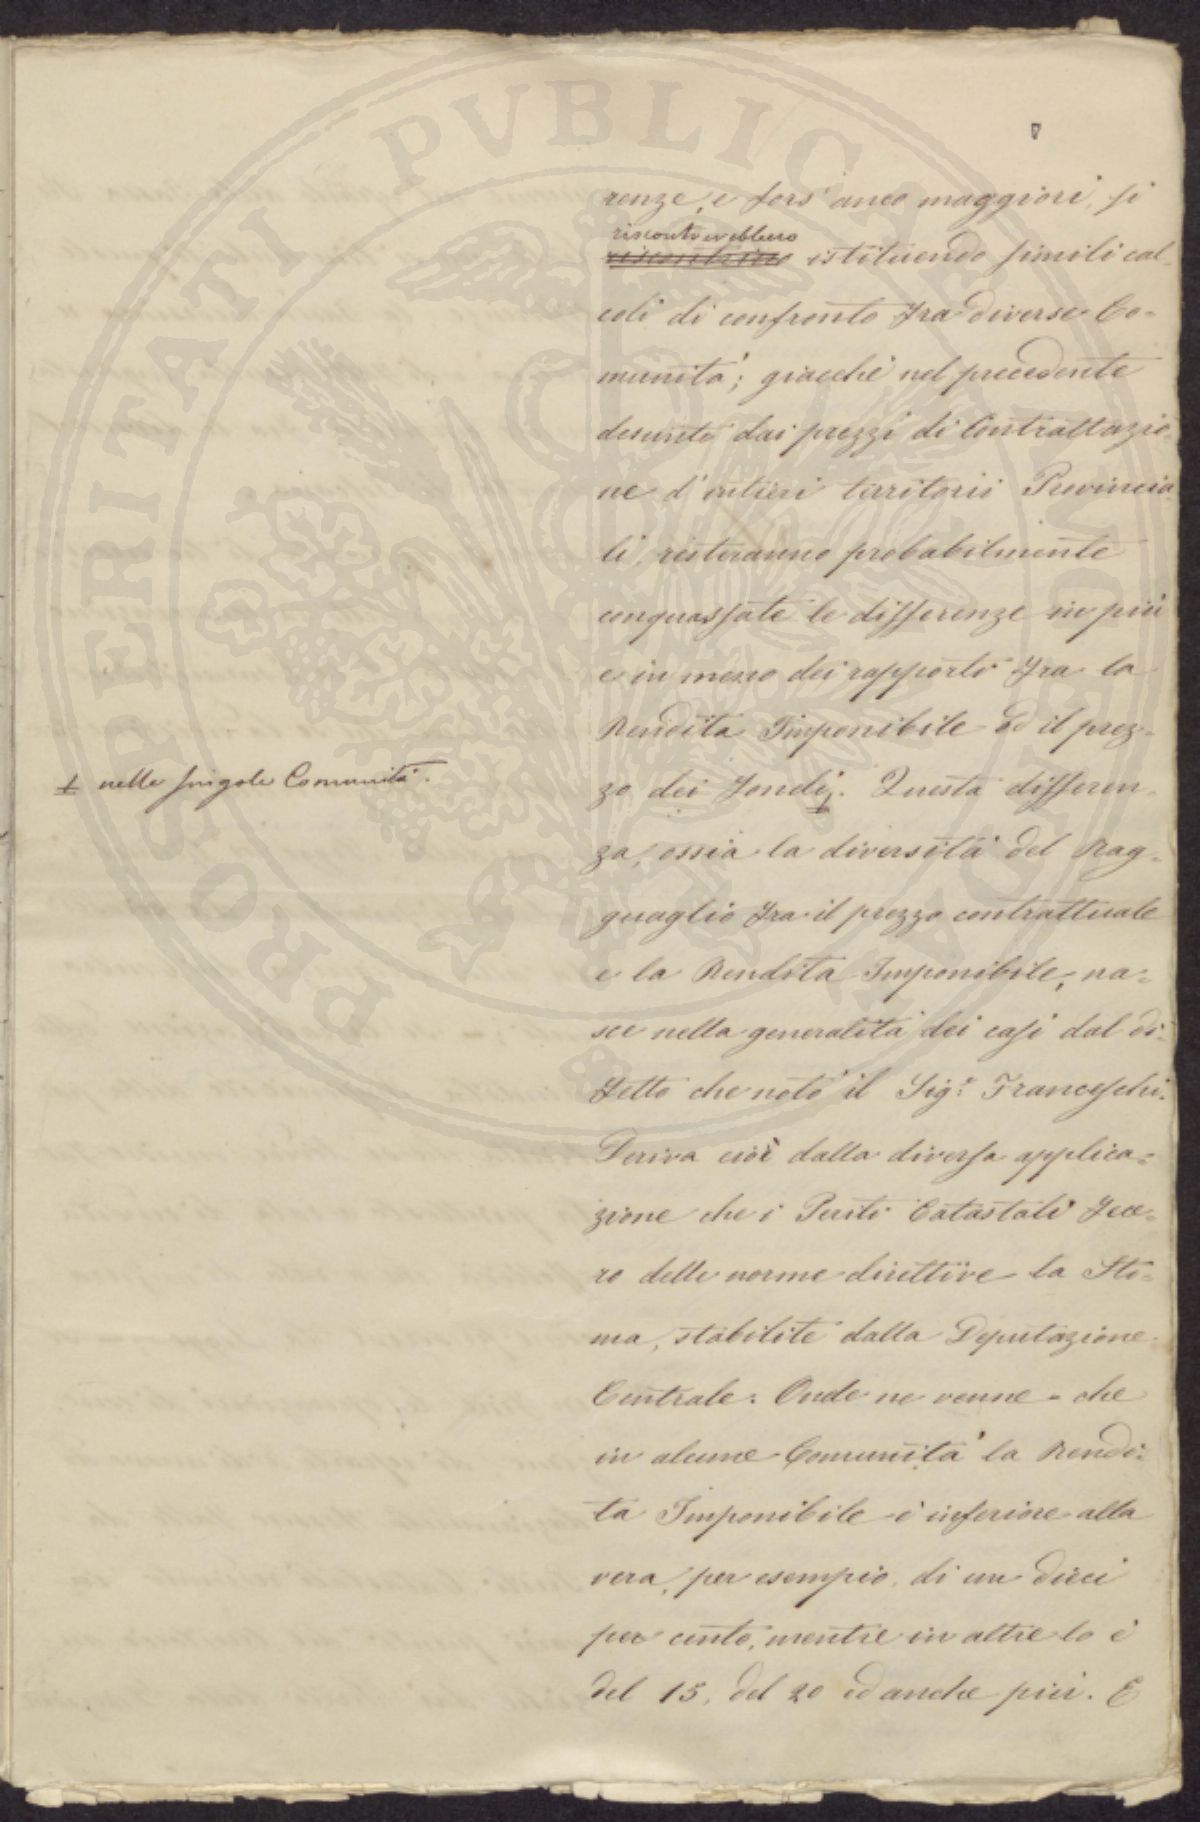 PROSPERITATI PVBLICAE AVGENDAE
7
renze, e fors' anco maggiori, si
riscontrerebbero
riscontrino istituendo simili cal-
coli di confronto fra diverse Co-
munità; giacchè nel precedente
desunto dai prezzi di Contrattazio-
ne d'intieri territorii Provincia-
li, resteranno probabilmente
conquassate le differenze in più
e in meno dei rapporti fra la
Rendita Imponibile ed il prez-
zo dei fondi. Questa differen-
+ nelle singole Comunità.
za, ossia la diversità del Rag-
guaglio fra il prezzo contrattuale
e la Rendita Imponibile, na-
sce nella generalità dei casi dal di-
fetto che notò il Sig.r Franceschi.
Deriva cioè dalla diversa applica-
zione che i Periti Catastali fece-
ro delle norme direttive la Sti-
ma, stabilite dalla Deputazione
Centrale. Onde ne venne che
in alcune Comunità la Rendi-
ta Imponibile è inferiore alla
vera, per esempio, di un dieci
per cento, mentre in altre lo è
del 15, del 20 ed anche più. E